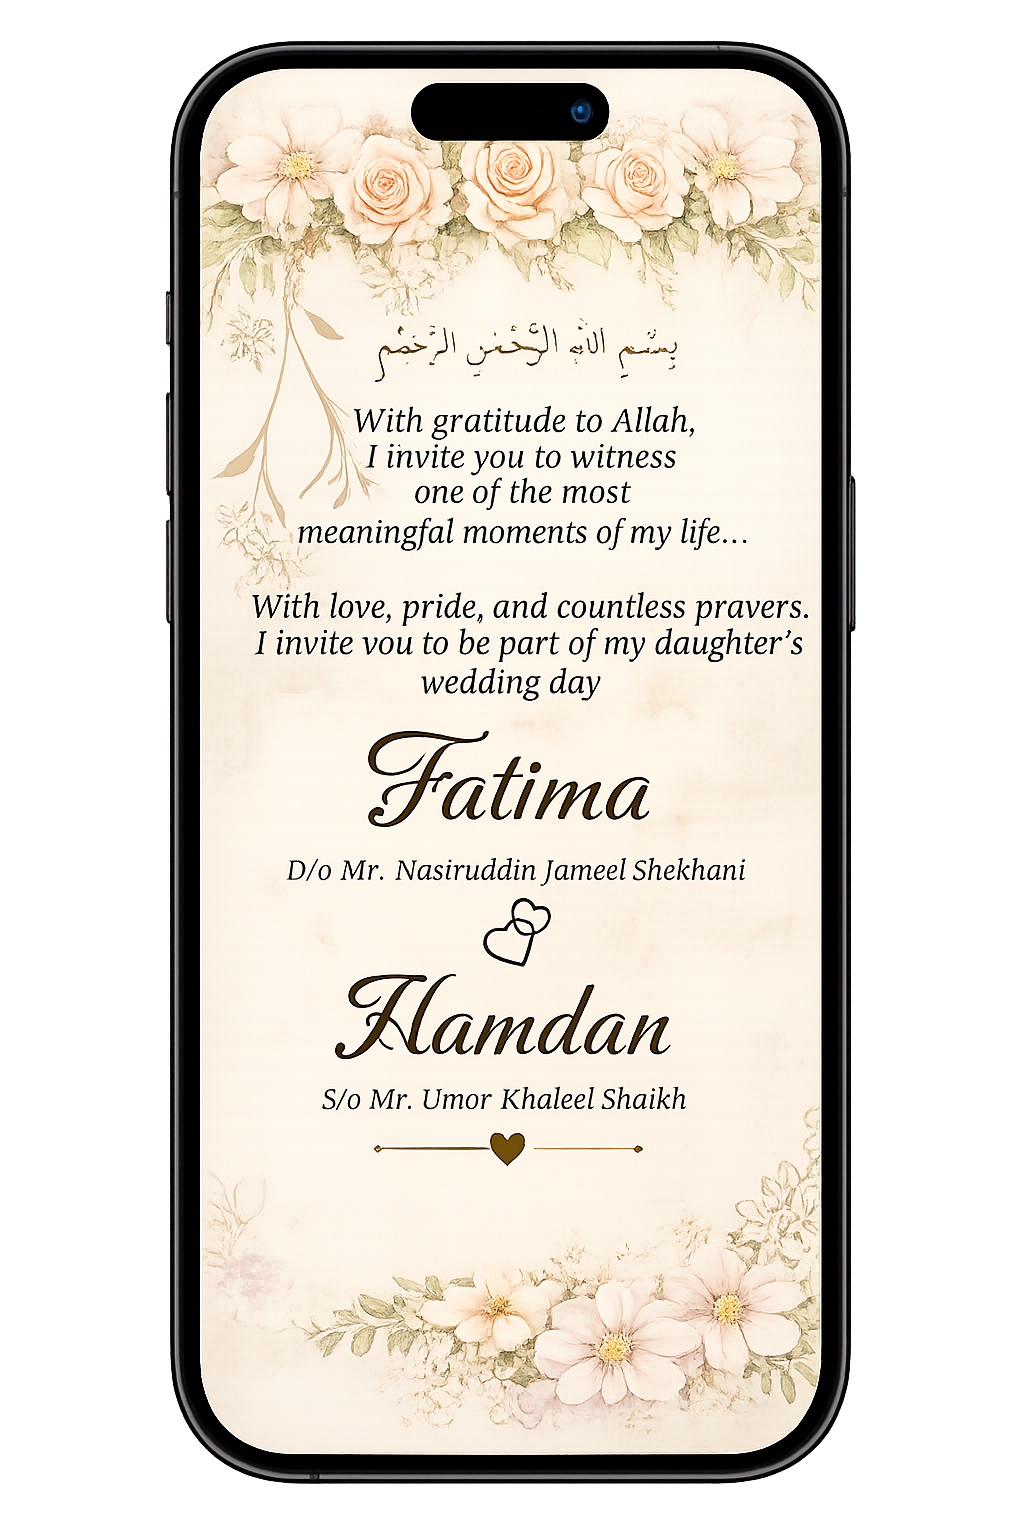 بسم الله الرحمن الرحيم
With gratitude to Allah,
I invite you to witness
one of the most
meaningful moments of my life...
With love, pride, and countless prayers.
I invite vou to be part of my daughter's
wedding day
Fatima
D/o Mr. Nasiruddin Jameel Shekhani
Hamdan
S/o Mr. Umor Khaleel Shaikh